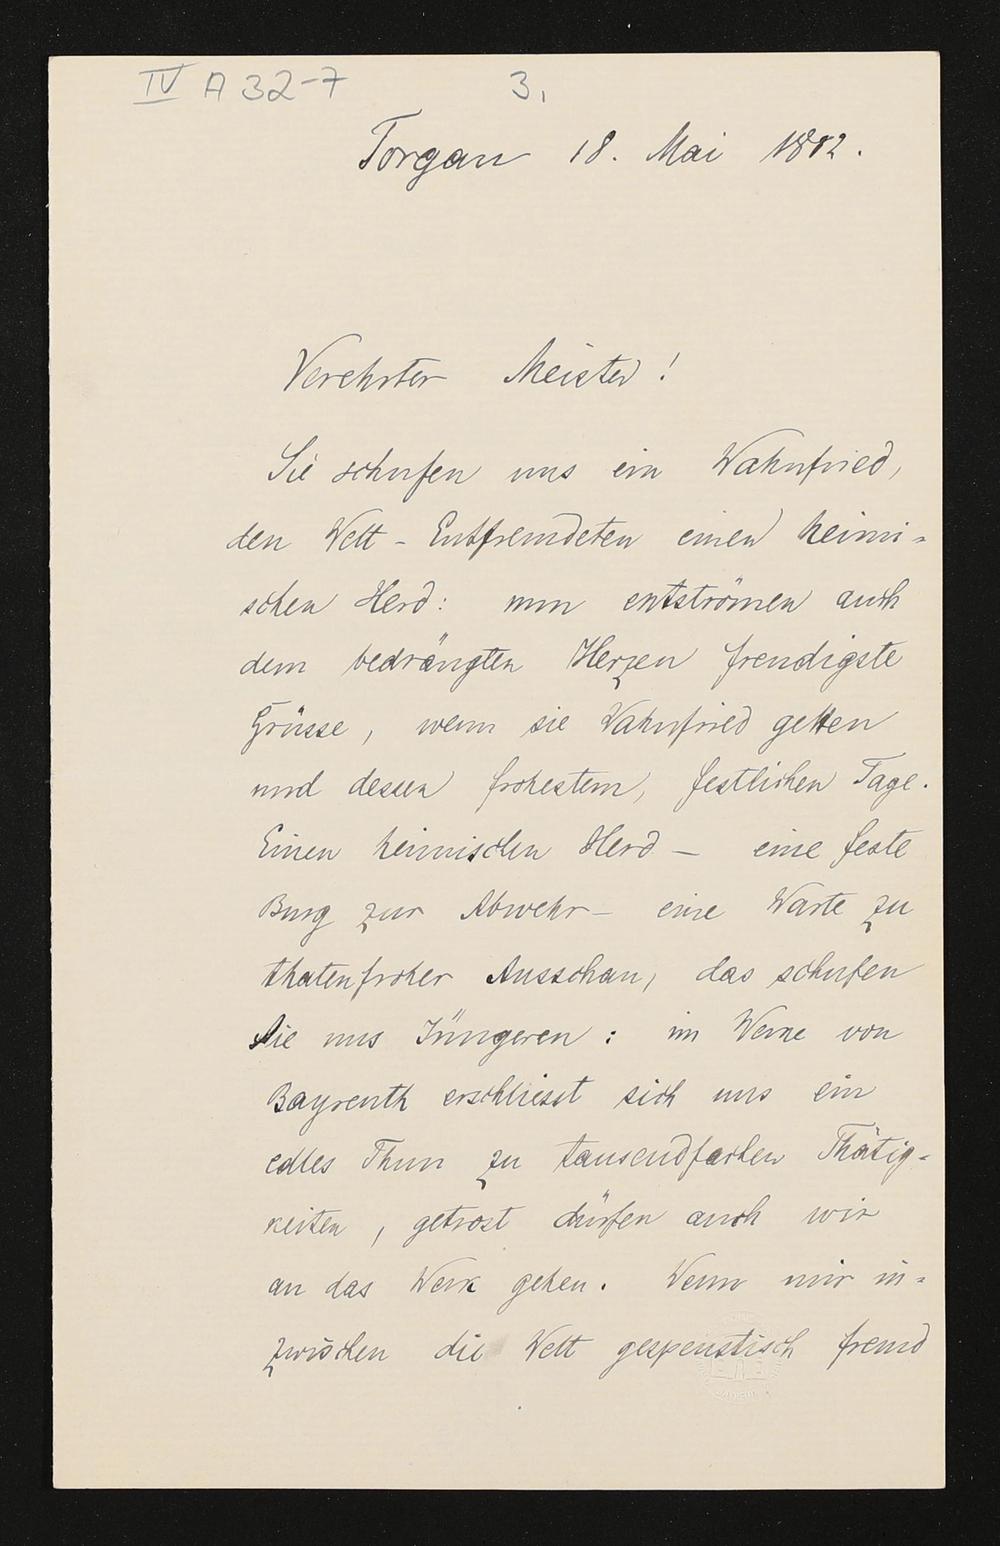 IV A 32-7 3,
Torgau 18. Mai 1882.
Verehrter Meister!
Sie schufen uns ein Wahnfried,
den Welt-Entfremdeten einen heimi-
schen Herd: nun entströmen auch
dem bedrängten Herzen freudigste
Grüsse, wenn sie Wahnfried gelten
und dessen frohestem, festlichen Tage.
Einen heimischen Herd — eine feste
Burg zur Abwehr — eine Warte zu
thatenfroher Ausschau, das schufen
Sie uns Jüngeren: im Werke von
Bayreuth erschliesst sich uns ein
edles Thun zu tausendfachen Thätig-
keiten, getrost dürfen auch wir
an das Werk gehen. Wenn mir in-
zwischen die Welt gespenstisch fremd